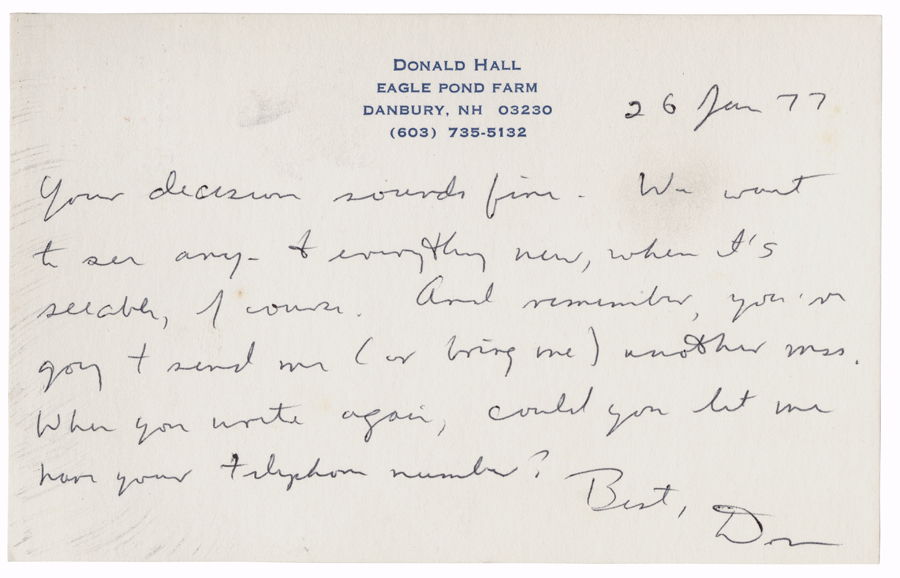 DONALD HALL
EAGLE POND FARM
DANBURY, NH 03230
(603) 735-5132
26 Jan 77
Your decision sounds fine. We want
to see any- & everything new, when it's
seeable, of course. And remember, you're
going to send me (or bring me) another mss.
When you write again, could you let me
have your telephone number?
Best,
Don